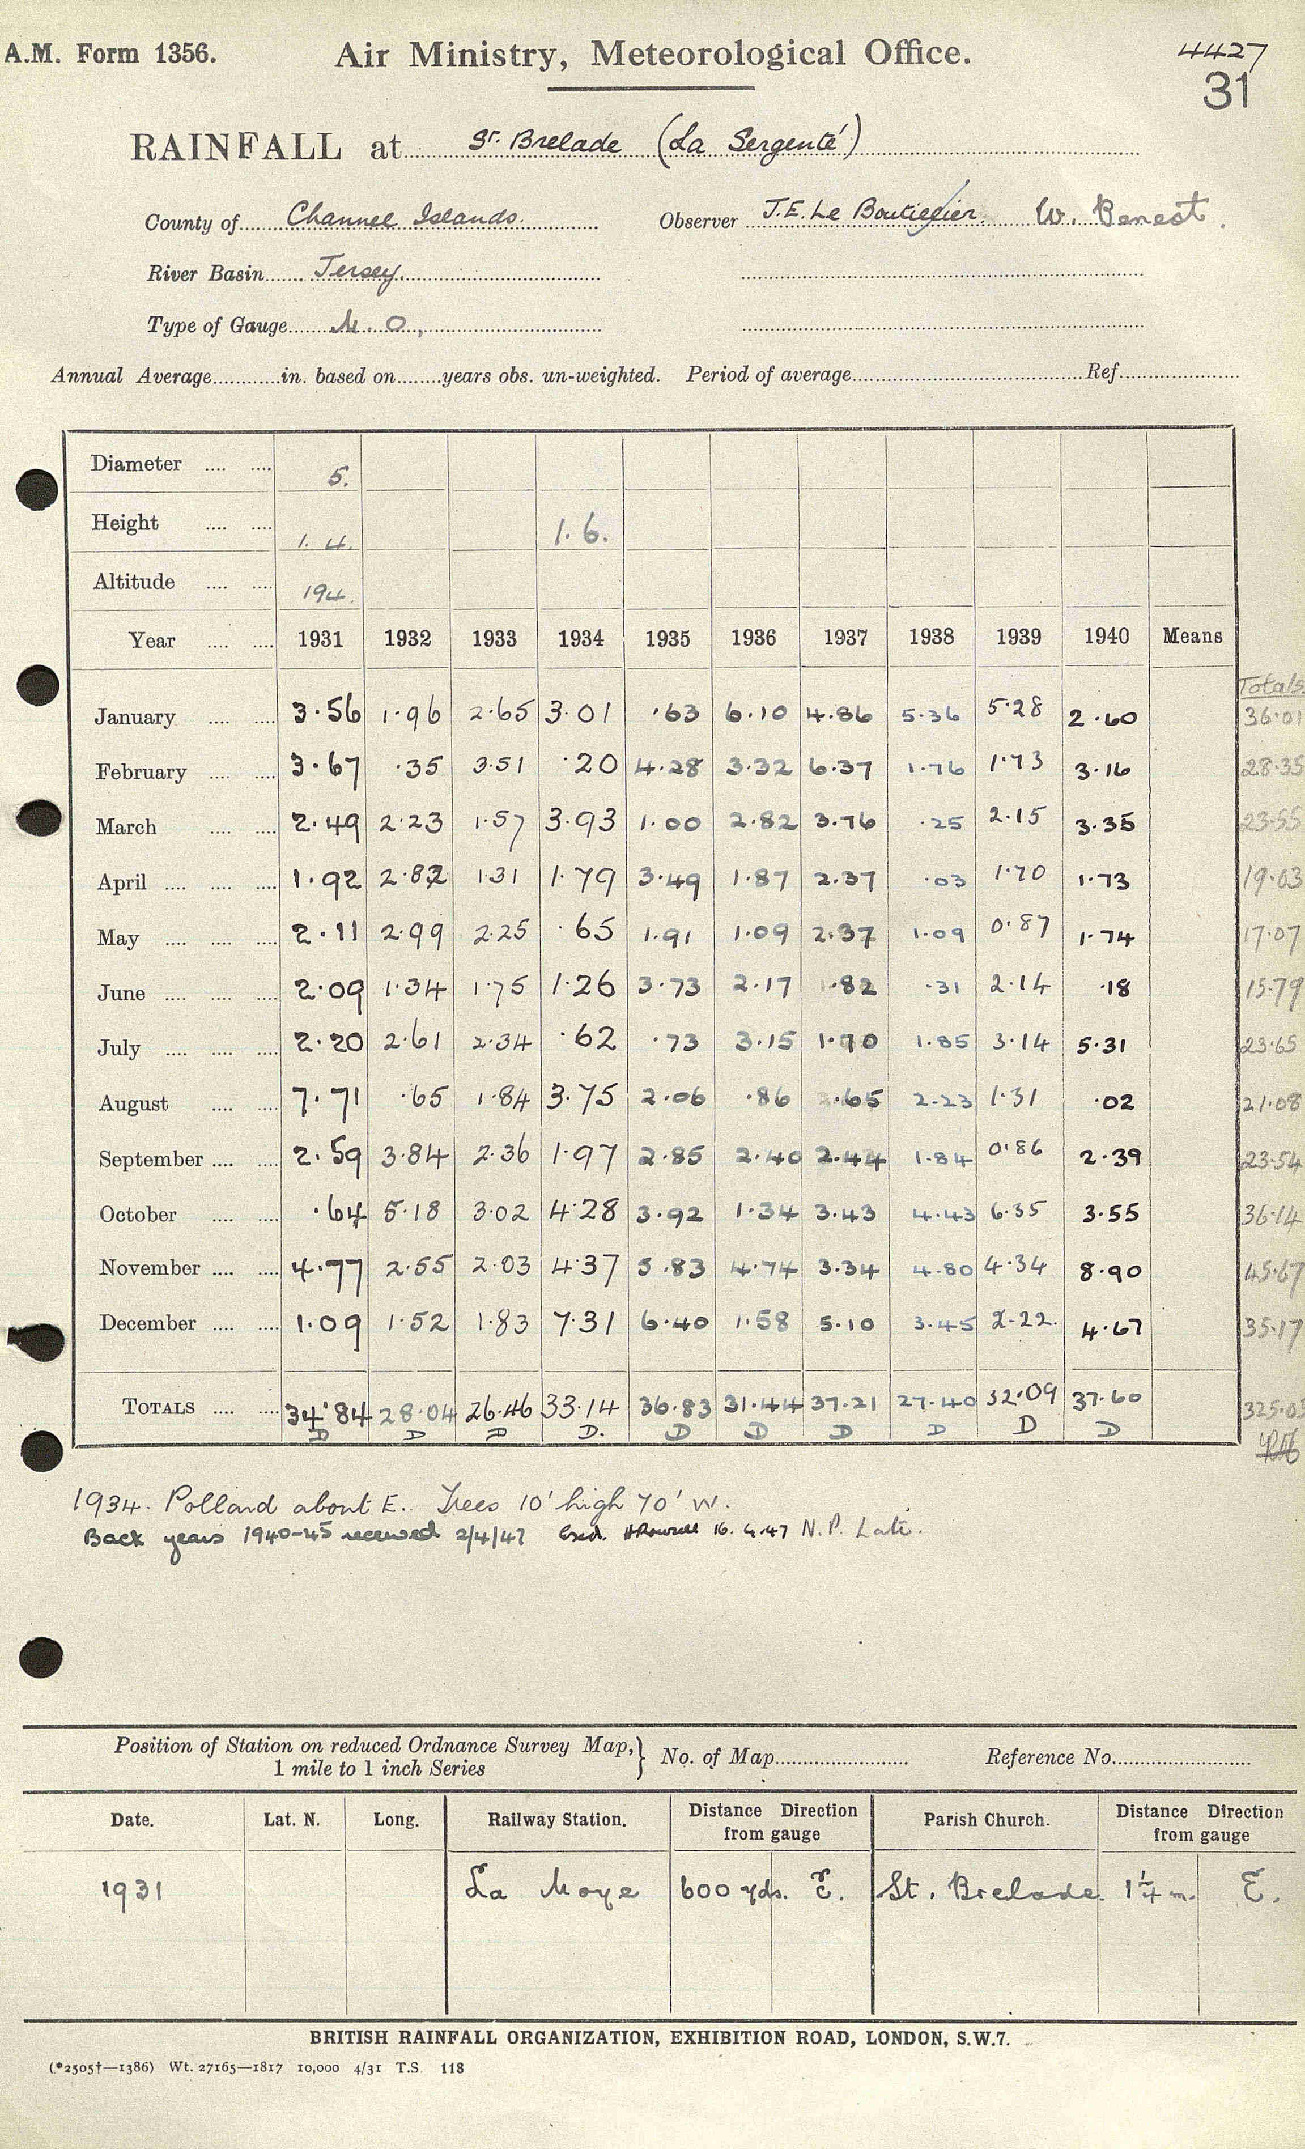 A.M. Form 1356.
Air Ministry, Meteorological Office.
4427
31
RAINFALL at St. Brelade (La Sergenté)
County of Channel Islands. Observer J.E. Le Boutillier. W. Benest.
River Basin Jersey.
Type of Gauge M.O,
Annual Average in. based on years obs. un-weighted. Period of average Ref.
Diameter 5.
Height 1. 4. 1. 6.
Altitude 194.
Year 1931 1932 1933 1934 1935 1936 1937 1938 1939 1940 Means
Totals
January 3.56 1.96 2.65 3.01 .63 6.10 4.86 5.36 5.28 2.60 36.01
February 3.67 .35 3.51 .20 4.28 3.32 6.37 1.76 1.73 3.16 28.35
March 2.49 2.23 1.57 3.93 1.00 2.82 3.76 .25 2.15 3.35 23.55
April 1.92 2.82 1.31 1.79 3.49 1.87 2.37 .03 1.70 1.73 19.03
May 2.11 2.99 2.25 .65 1.91 1.09 2.37 1.09 0.87 1.74 17.07
June 2.09 1.34 1.75 1.26 3.73 2.17 .82 .31 2.14 .18 15.79
July 2.20 2.61 2.34 .62 .73 3.15 1.70 1.85 3.14 5.31 23.65
August 7.71 .65 1.84 3.75 2.06 .86 .65 2.23 1.31 .02 21.08
September 2.59 3.84 2.36 1.97 2.85 2.40 2.44 1.84 0.86 2.39 23.54
October .64 5.18 3.02 4.28 3.92 1.34 3.43 4.43 6.35 3.55 36.14
November 4.77 2.55 2.03 4.37 5.83 4.74 3.34 4.80 4.34 8.90 45.67
December 1.09 1.52 1.83 7.31 6.40 1.58 5.10 3.45 2.22 4.67 35.17
TOTALS 34.84 28.04 26.46 33.14 36.83 31.44 37.21 27.40 32.09 37.60 325.05
D D D D. D D D D D D
1934. Pollard about E. Trees 10' high 70' W.
Back years 1940-45 received 2/4/47 16.4.47 N.P. Late.
Position of Station on reduced Ordnance Survey Map, 1 mile to 1 inch Series } No. of Map Reference No.
Date. Lat. N. Long. Railway Station. Distance Direction from gauge Parish Church. Distance Direction from gauge
1931 La Moye 600 yds. E. St. Brelade. 1¼ m. E.
BRITISH RAINFALL ORGANIZATION, EXHIBITION ROAD, LONDON, S.W.7.
(*2505†—1386) Wt. 27165—1817 10,000 4/31 T.S. 118